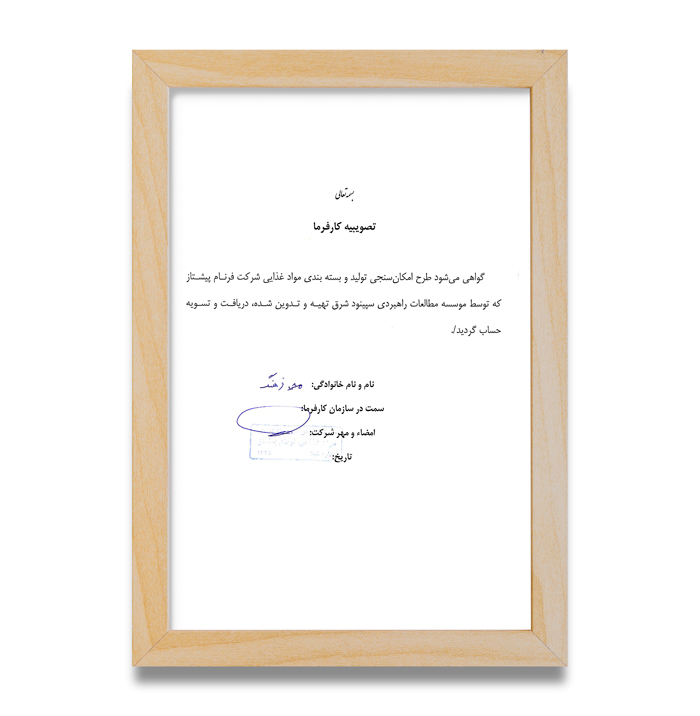 بسمه‌تعالی
تصویبیه کارفرما
گواهی می‌شود طرح امکان‌سنجی تولید و بسته بندی مواد غذایی شرکت فرنام پیشتاز
که توسط موسسه مطالعات راهبردی سپینود شرق تهیه و تدوین شده، دریافت و تسویه
حساب گردید/.
نام و نام خانوادگی:
سمت در سازمان کارفرما:
امضاء و مهر شرکت:
تاریخ: